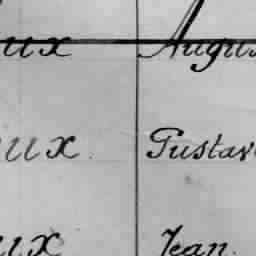 ux Augus
ux Gustav
ux Jean